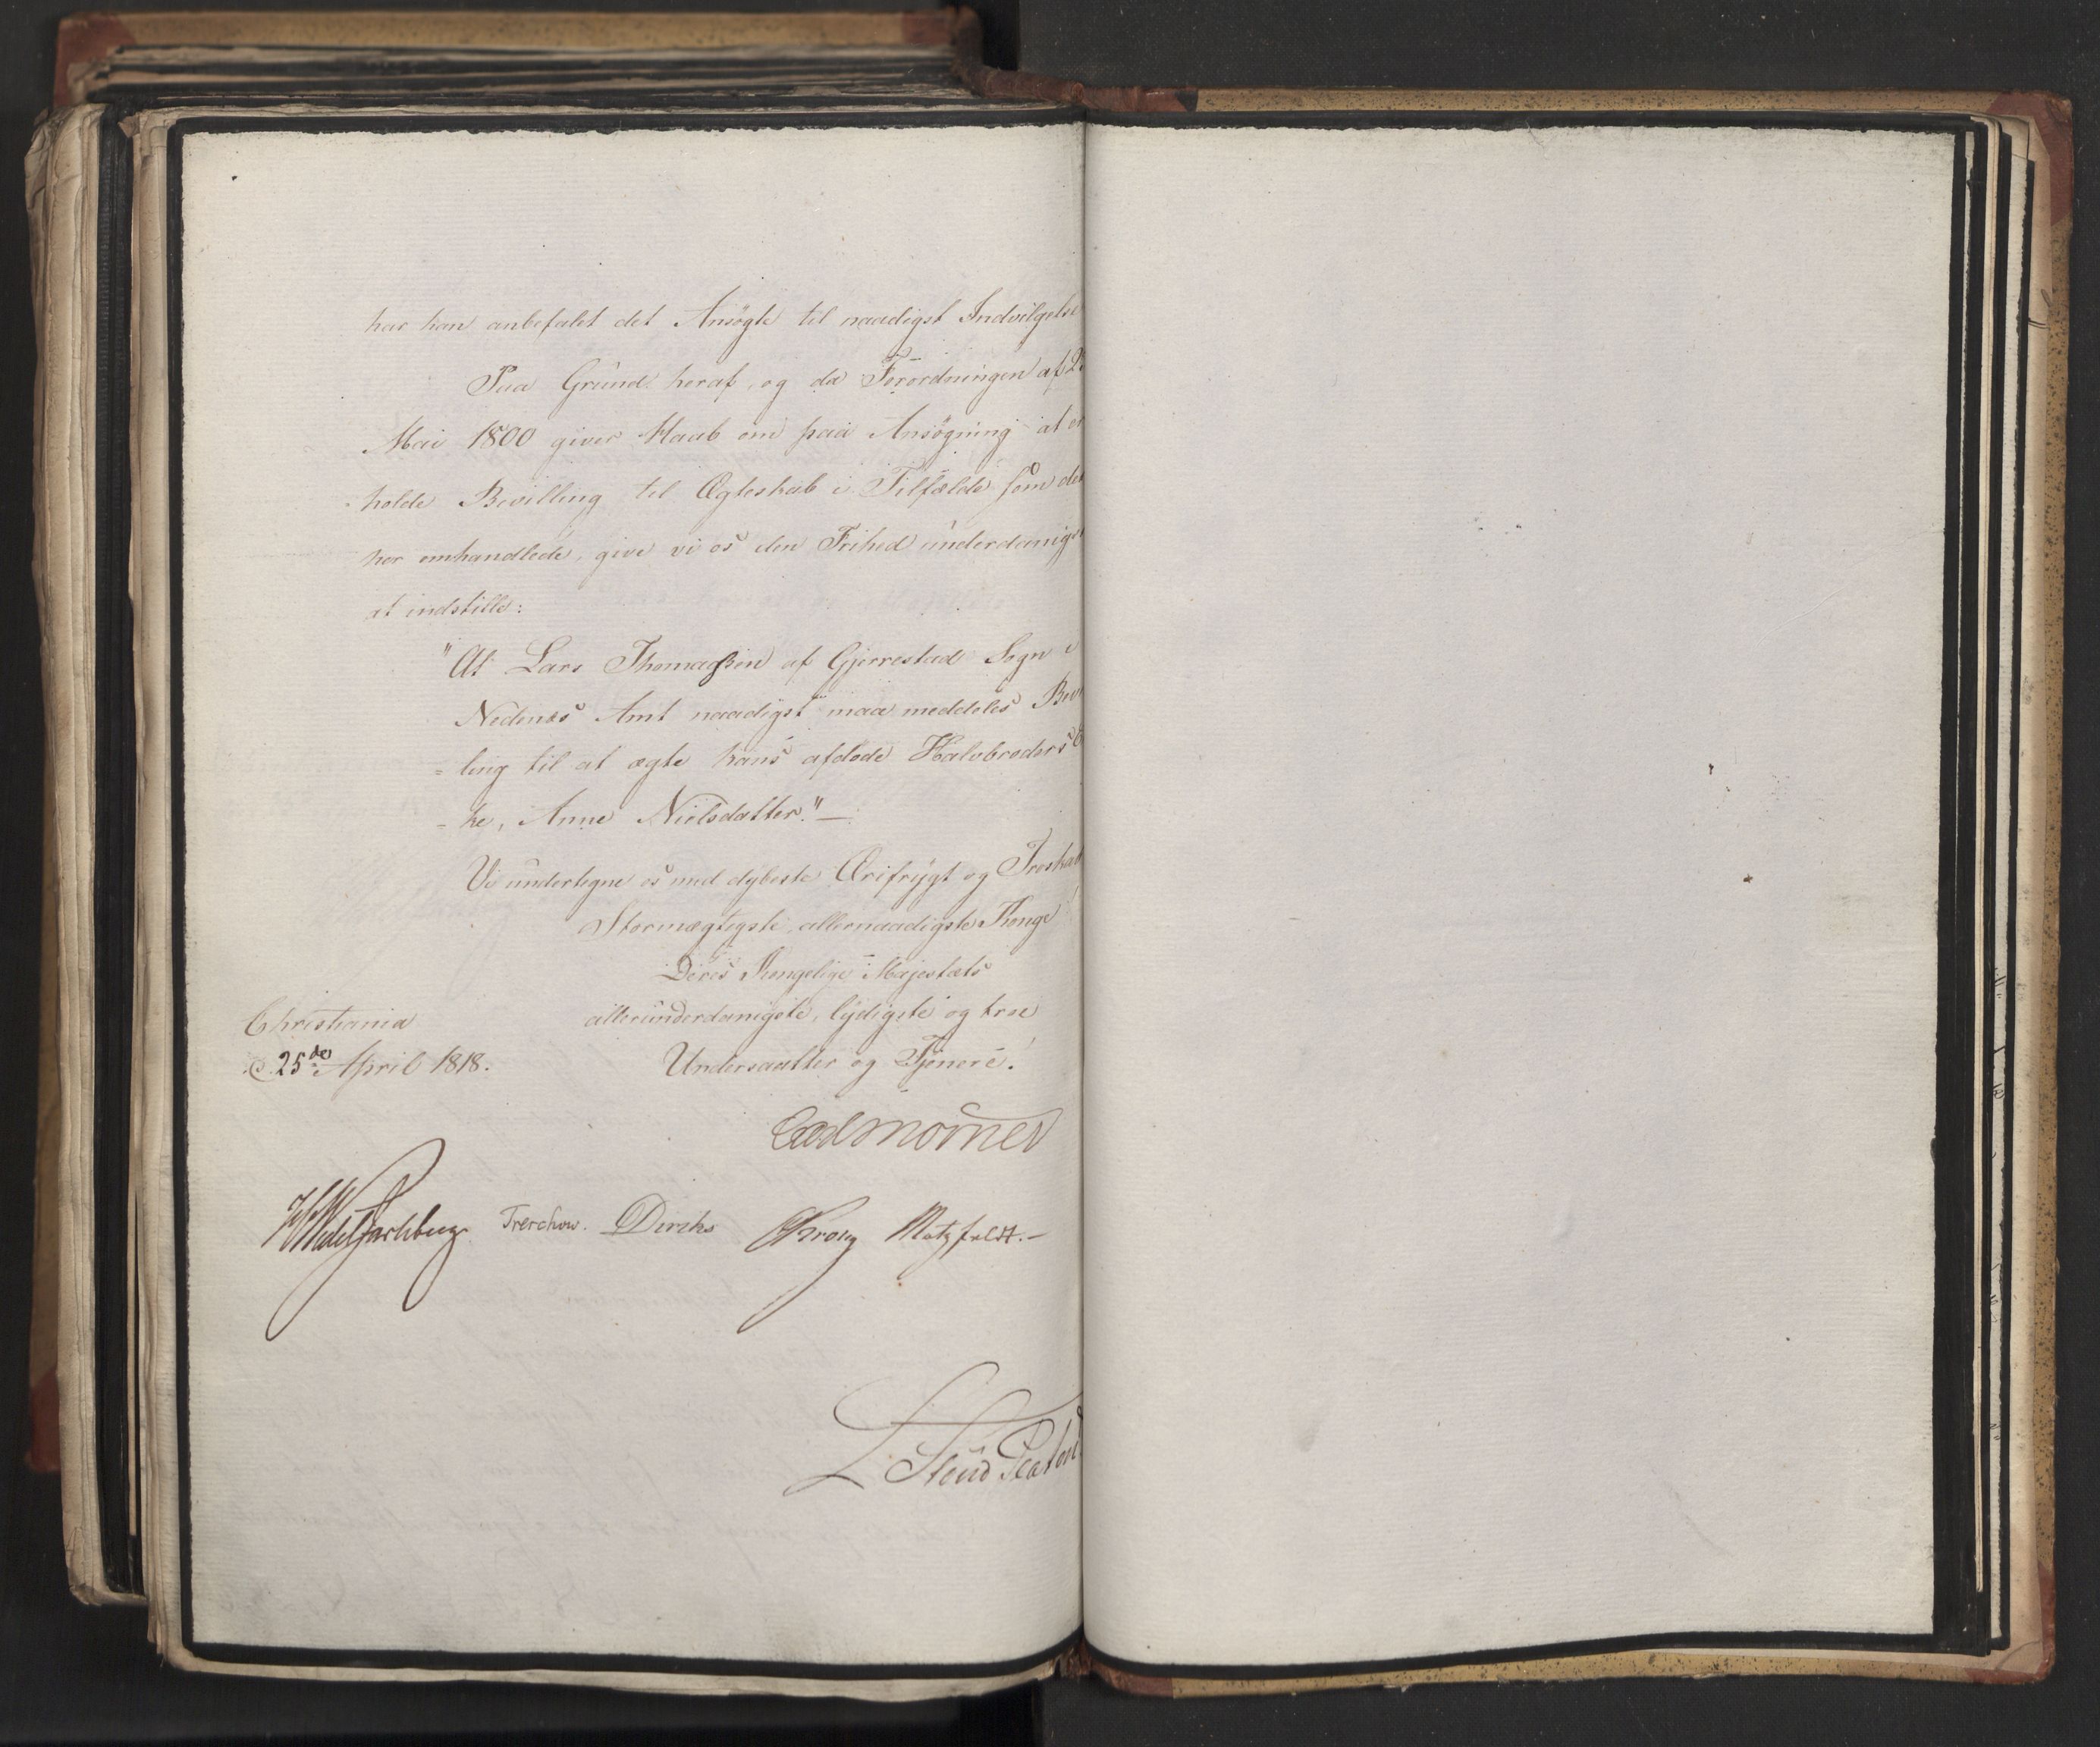 har han anbefalet det Ansøgte til naadigst Indvilgelse
Paa Grund heraf, og da Forordningen af 2
Mai 1800 giver Haab om paa Ansøgning at er
-holde Bevilling til Ægteskab i Tilfælde som det
her omhandlede, give vi os den Frihed underdanigst
at indstille:
"At Lars Thomassen af Gjerrestad Sogn i
Nedenæs Amt naadigst maa meddeles Bevi
=ling til at ægte hans afdøde Halvbroders E
-ke, Anne Nielsdatter."—
Vi undertegne os med dybeste Ærefrygt og Troskab
Stormægtigste, allernaadigste Konge!
Deres Kongelige Majestæts
Christania
allerunderdanigste, lydigste og troe
d. 25de April 1818.
Undersaatter og Tjenere.
Carl Mörner
HWedel Jarlsberg Treschow. Diriks CKrohg Motzfeldt.-
L Stoud Platou